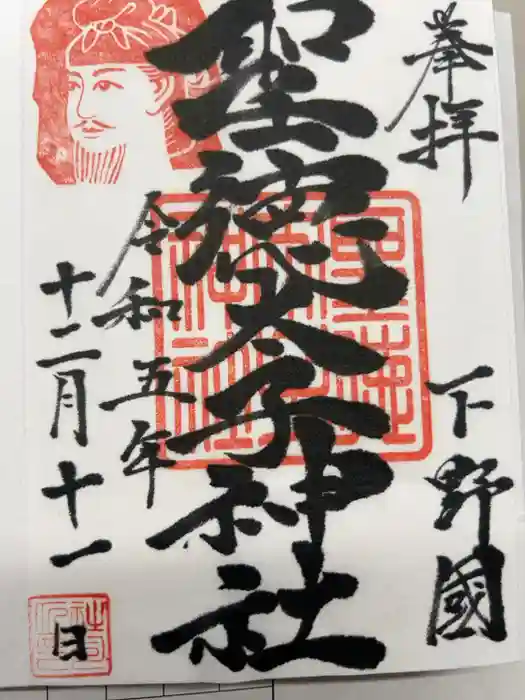 奉拝
下野國
聖徳太子神社
令和五年
十二月十一日